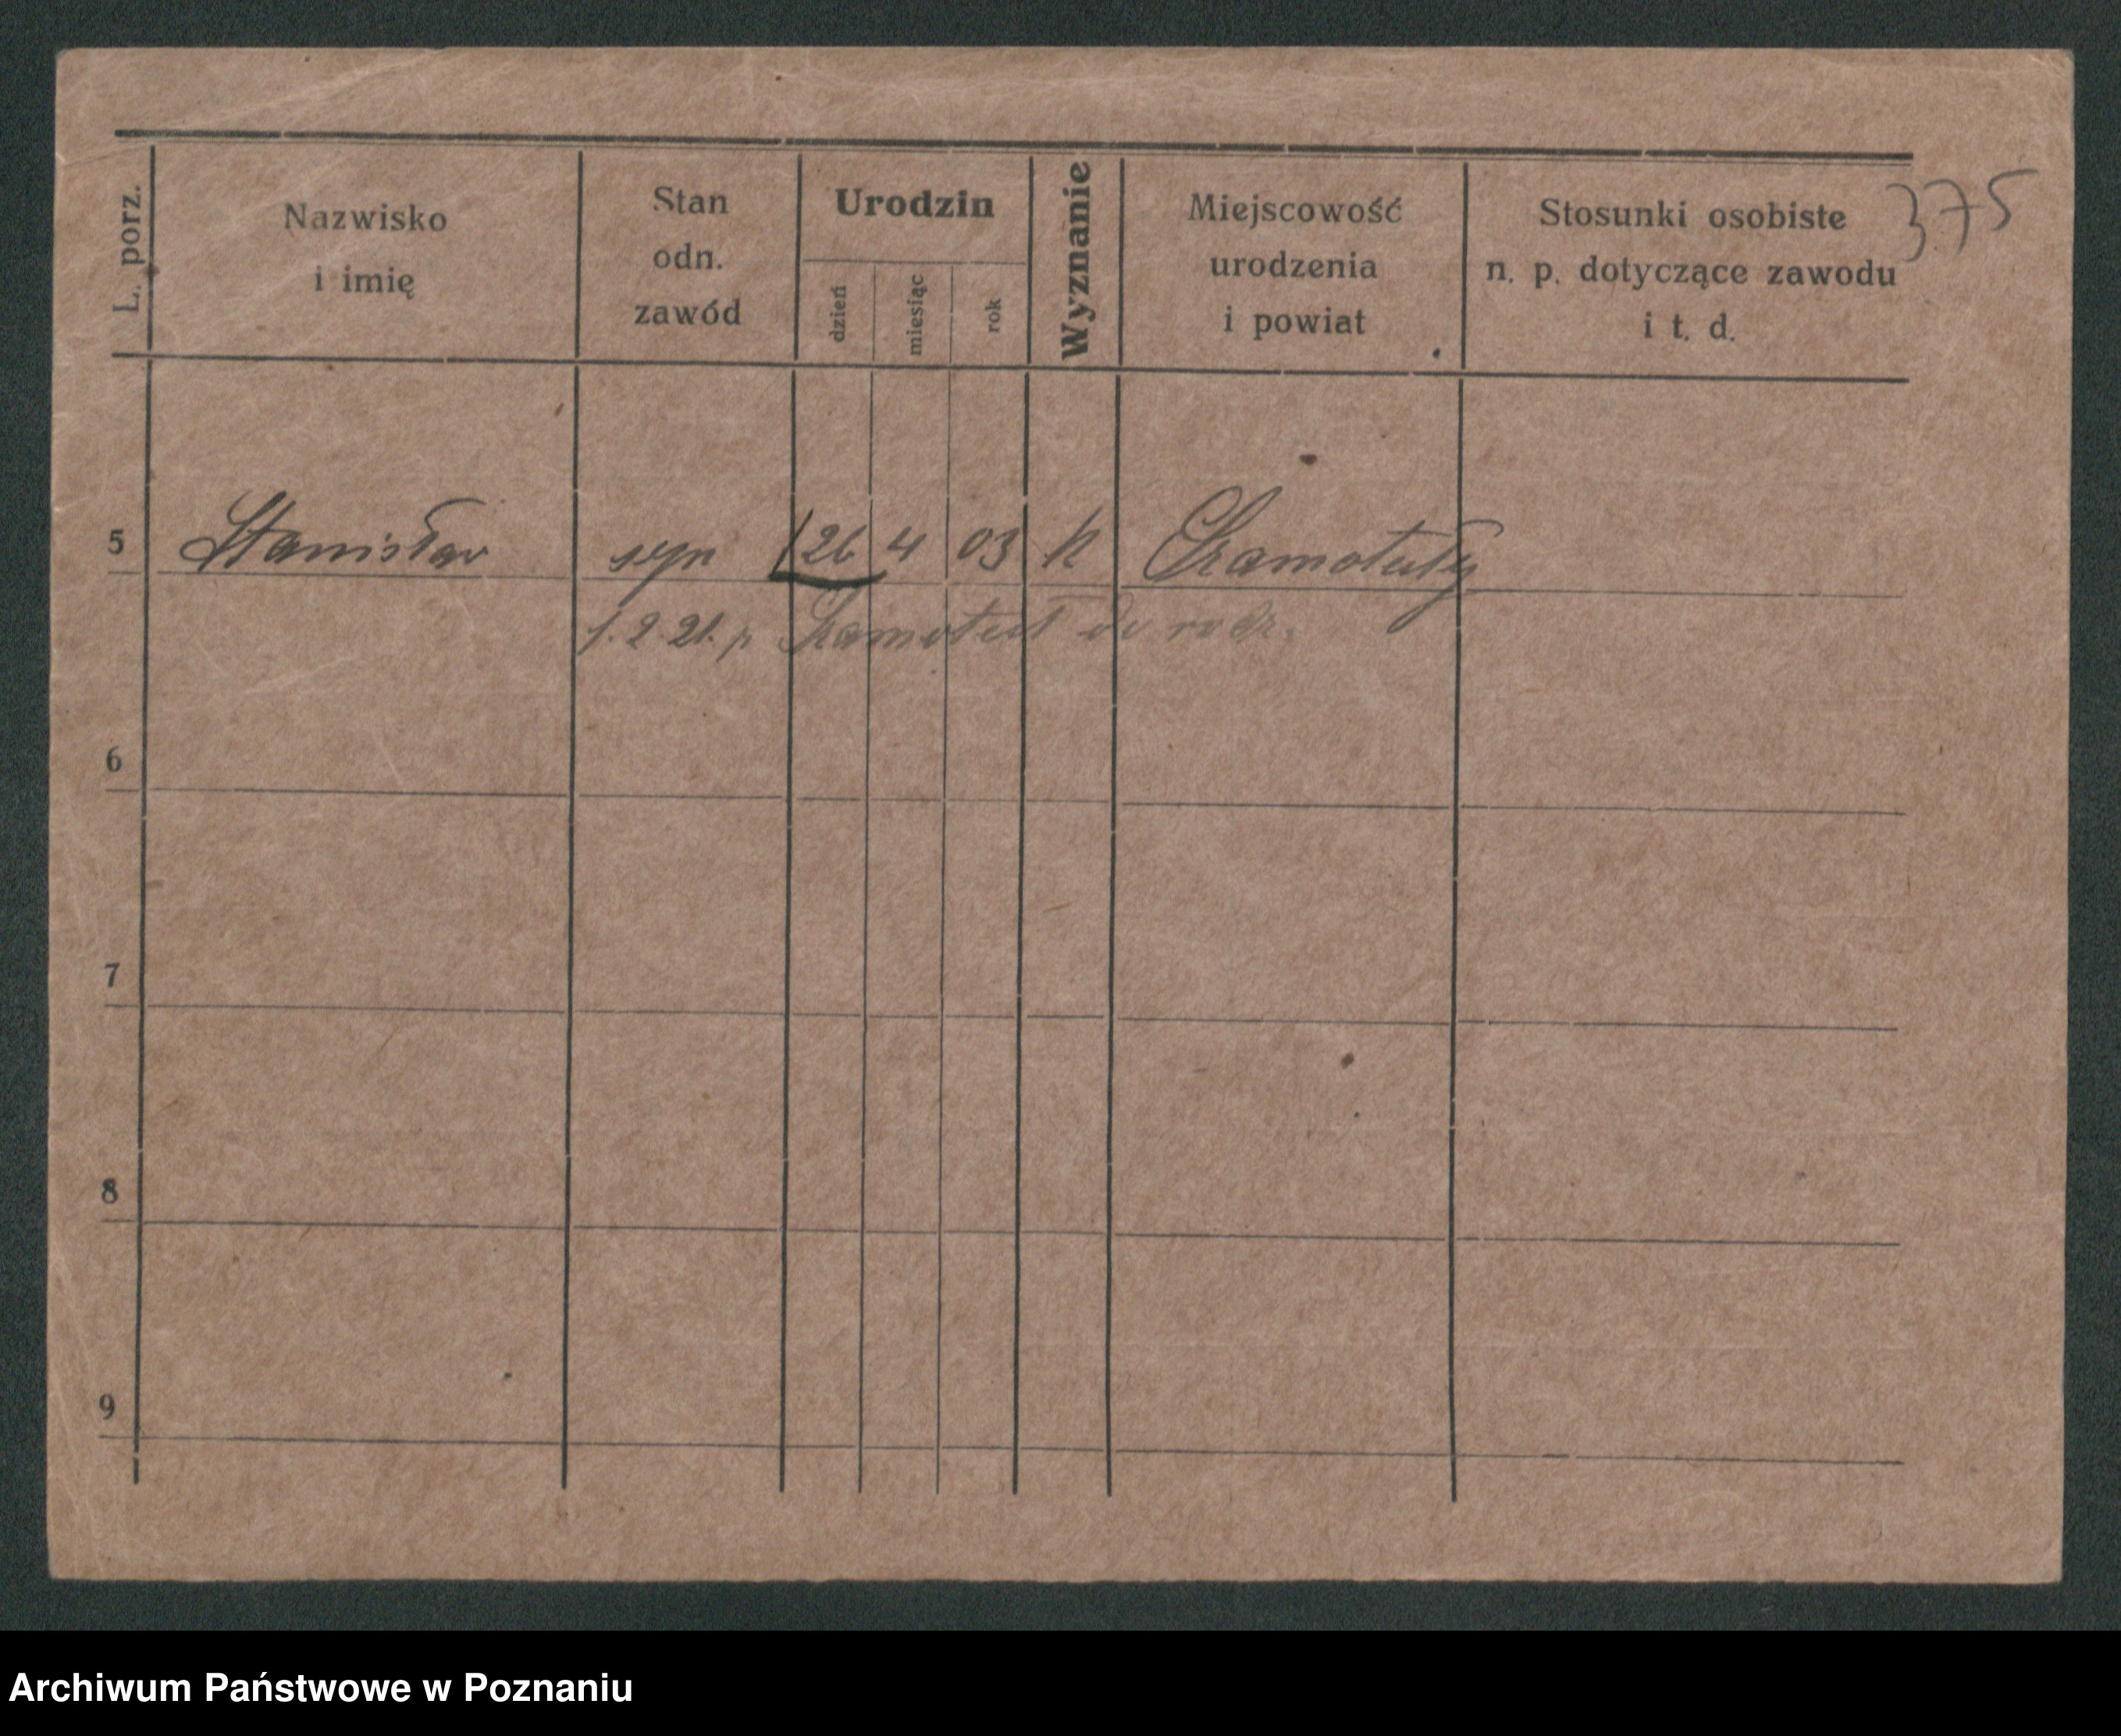 375
L. porz.
Nazwisko
i imię
Stan
odn.
zawód
Urodzin
dzień
miesiąc
rok
Wyznanie
Miejscowość
urodzenia
i powiat
Stosunki osobiste
n. p. dotyczące zawodu
i t. d.
5 Stanisław syn 26 4 03 k Szamotuły
1.2.21. p. Szamotuł do rodz.
6
7
8
9
Archiwum Państwowe w Poznaniu